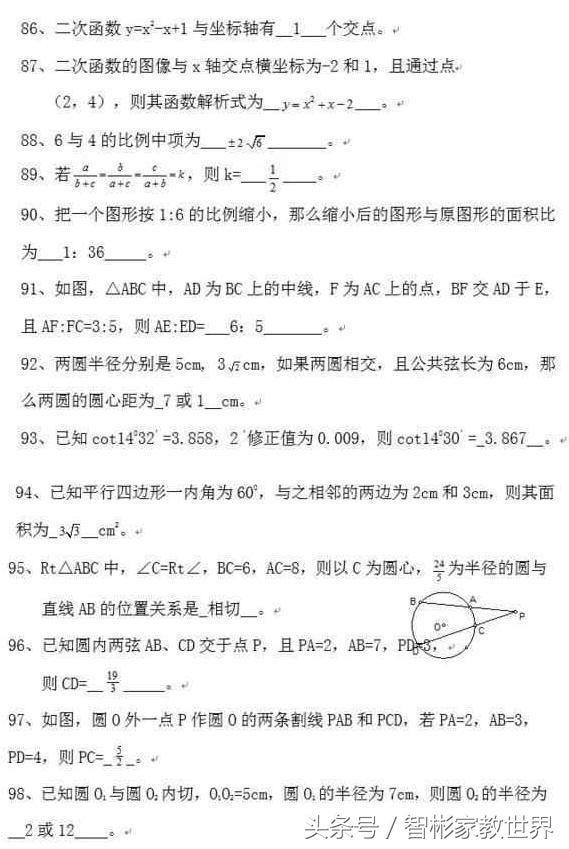 86、二次函数 y=x²-x+1 与坐标轴有__1___个交点。
87、二次函数的图像与 x 轴交点横坐标为-2 和 1，且通过点
（2，4），则其函数解析式为__y=x²+x-2___。
88、6 与 4 的比例中项为___±2√6_______。
89、若a/(b+c)=b/(a+c)=c/(a+b)=k，则 k=___1/2____。
90、把一个图形按 1:6 的比例缩小，那么缩小后的图形与原图形的面积比
为___1：36_____。
91、如图，△ABC 中，AD 为 BC 上的中线，F 为 AC 上的点，BF 交 AD 于 E，
且 AF:FC=3:5，则 AE:ED=___6：5_______。
92、两圆半径分别是 5cm, 3√2cm，如果两圆相交，且公共弦长为 6cm，那
么两圆的圆心距为_7 或 1__cm。
93、已知 cot14⁰32′=3.858，2′修正值为 0.009，则 cot14⁰30′=_3.867__。
94、已知平行四边形一内角为 60⁰，与之相邻的两边为 2cm 和 3cm，则其面
积为_3√3__cm²。
95、Rt△ABC 中，∠C=Rt∠，BC=6，AC=8，则以 C 为圆心，24/5为半径的圆与
直线 AB 的位置关系是_相切__。
B A P
O C
D
96、已知圆内两弦 AB、CD 交于点 P，且 PA=2，AB=7，PD=3，
则 CD=__19/3_____。
97、如图，圆 O 外一点 P 作圆 O 的两条割线 PAB 和 PCD，若 PA=2，AB=3，
PD=4，则 PC=_5/2_。
98、已知圆 O₁与圆 O₂内切，O₁O₂=5cm，圆 O₁的半径为 7cm，则圆 O₂的半径为
__2 或 12____。
头条号／智彬家教世界